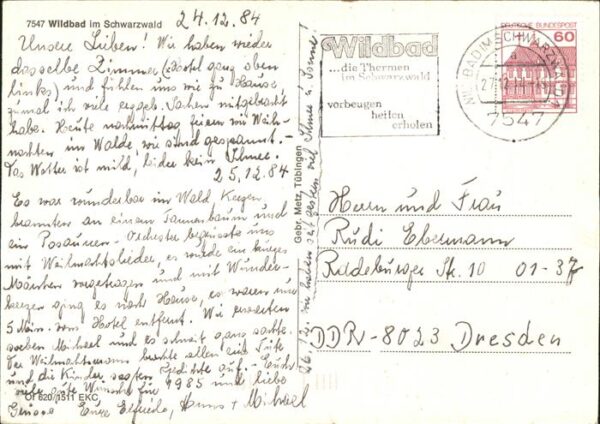 7547 Wildbad im Schwarzwald
24.12.84
Unsere Lieben! Wir haben wieder
dasselbe Zimmer (Hotel ganz oben
links) und fühlen uns wie zu Hause,
zumal ich viele Sachen mitgebracht
habe. Heute nachmittag feiern wir Weih-
nachten im Walde, wir sind gespannt.-
Das Wetter ist mild, leider kein Schnee.
25.12.84
Es war wunderbar im Wald, Kerzen
brannten an einem Tannenbaum und
ein Posaunen-Orchester begrüsste uns
mit Weihnachtslieder, es wurde ein kurzes
Märchen vorgetragen und mit Wunder-
kerzen ging es nach Hause, es waren nur
5 Min. vom Hotel entfernt. Wir erwarten
soeben Michael und es schneit ganz sachte.
Der Weihnachtsmann brachte allen eine Tüte
und die Kinder sagten Gedichte auf.- Euch
viele gute Wünsche für 1985 und liebe
Grüsse Eure Elfriede, Hanns + Michael
Of 620/1511 EKC
Gebr. Metz, Tübingen
26.12. wir haben seit gestern viel Schnee u. Sonne!
Wildbad
...die Thermen
im Schwarzwald
vorbeugen
helfen
erholen
WILDBAD IM SCHWARZWALD
a
27.12.84
7547
DEUTSCHE BUNDESPOST
60
Herrn und Frau
Rudi Ebermann
Str. 10 01-37
DDR-8023 Dresden